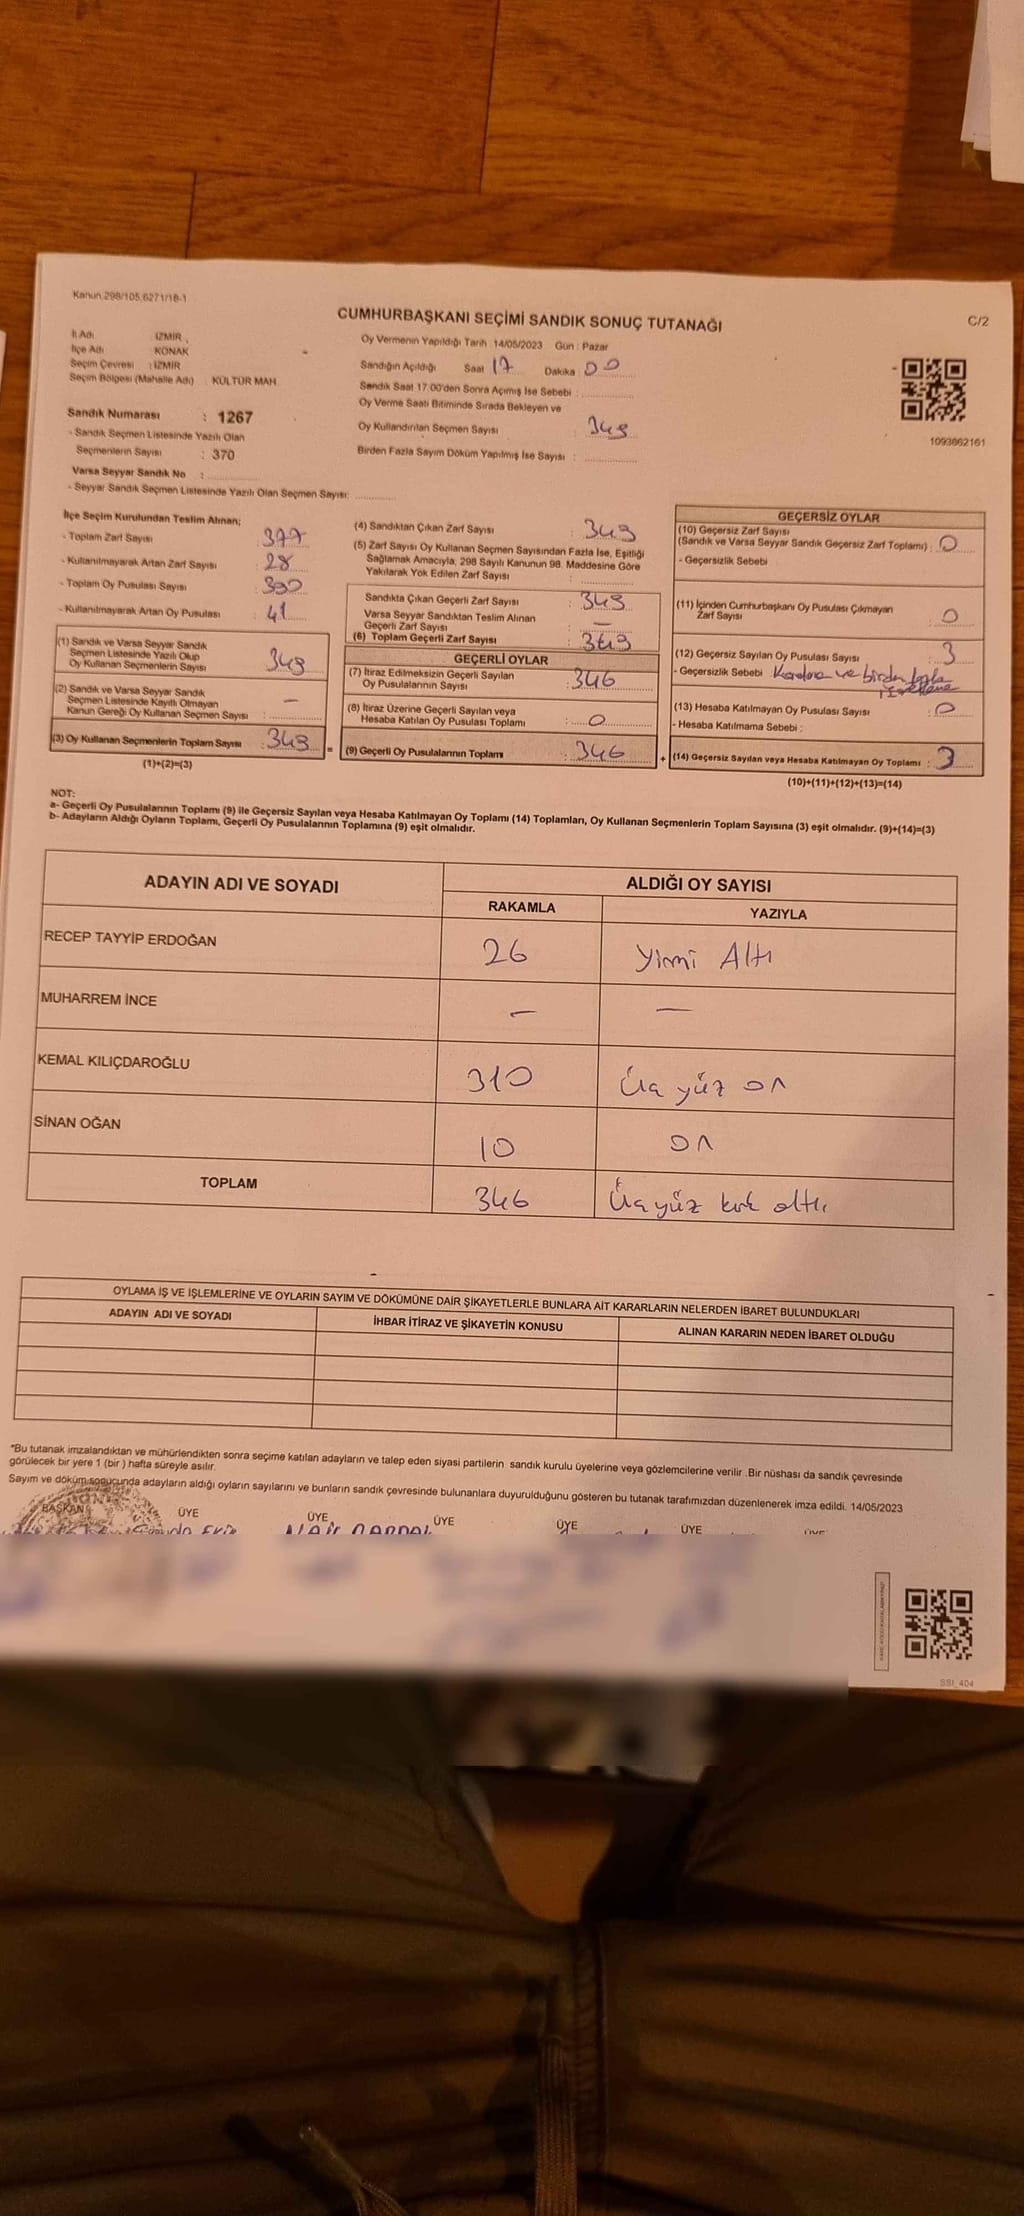 Kanun.298/105,6271/18-1
C/2
CUMHURBAŞKANI SEÇİMİ SANDIK SONUÇ TUTANAĞI
İl Adı : İZMİR
İlçe Adı : KONAK
Seçim Çevresi : İZMİR
Seçim Bölgesi (Mahalle Adı) : KÜLTÜR MAH.
Sandık Numarası : 1267
- Sandık Seçmen Listesinde Yazılı Olan
Seçmenlerin Sayısı : 370
Varsa Seyyar Sandık No :
- Seyyar Sandık Seçmen Listesinde Yazılı Olan Seçmen Sayısı:
Oy Vermenin Yapıldığı Tarih 14/05/2023 Gün : Pazar
Sandığın Açıldığı Saat 17 Dakika 00
Sandık Saat 17:00'den Sonra Açımış İse Sebebi :
Oy Verme Saati Bitiminde Sırada Bekleyen ve
Oy Kullandırılan Seçmen Sayısı : 349
Birden Fazla Sayım Döküm Yapılmış İse Sayısı :
1093862161
İlçe Seçim Kurulundan Teslim Alınan;
- Toplam Zarf Sayısı : 377
- Kullanılmayarak Artan Zarf Sayısı : 28
- Toplam Oy Pusulası Sayısı : 390
- Kullanılmayarak Artan Oy Pusulası : 41
(1) Sandık ve Varsa Seyyar Sandık
Seçmen Listesinde Yazılı Olup
Oy Kullanan Seçmenlerin Sayısı : 349
(2) Sandık ve Varsa Seyyar Sandık
Seçmen Listesinde Kayıtlı Olmayan
Kanun Gereği Oy Kullanan Seçmen Sayısı : -
(3) Oy Kullanan Seçmenlerin Toplam Sayısı : 349 =
(1)+(2)=(3)
(4) Sandıktan Çıkan Zarf Sayısı : 349
(5) Zarf Sayısı Oy Kullanan Seçmen Sayısından Fazla İse, Eşitliği
Sağlamak Amacıyla, 298 Sayılı Kanunun 98. Maddesine Göre
Yakılarak Yok Edilen Zarf Sayısı :
Sandıkta Çıkan Geçerli Zarf Sayısı : 349
Varsa Seyyar Sandıktan Teslim Alınan
Geçerli Zarf Sayısı : -
(6) Toplam Geçerli Zarf Sayısı : 349
GEÇERLİ OYLAR
(7) İtiraz Edilmeksizin Geçerli Sayılan
Oy Pusulalarının Sayısı : 346
(8) İtiraz Üzerine Geçerli Sayılan veya
Hesaba Katılan Oy Pusulası Toplamı : 0
(9) Geçerli Oy Pusulalarının Toplamı : 346 +
GEÇERSİZ OYLAR
(10) Geçersiz Zarf Sayısı
(Sandık ve Varsa Seyyar Sandık Geçersiz Zarf Toplamı) : 0
- Geçersizlik Sebebi :
(11) İçinden Cumhurbaşkanı Oy Pusulası Çıkmayan
Zarf Sayısı : 0
(12) Geçersiz Sayılan Oy Pusulası Sayısı : 3
- Geçersizlik Sebebi : ve birden fazla
(13) Hesaba Katılmayan Oy Pusulası Sayısı : 0
- Hesaba Katılmama Sebebi :
(14) Geçersiz Sayılan veya Hesaba Katılmayan Oy Toplamı : 3
(10)+(11)+(12)+(13)=(14)
NOT:
a- Geçerli Oy Pusulalarının Toplamı (9) ile Geçersiz Sayılan veya Hesaba Katılmayan Oy Toplamı (14) Toplamları, Oy Kullanan Seçmenlerin Toplam Sayısına (3) eşit olmalıdır. (9)+(14)=(3)
b- Adayların Aldığı Oyların Toplamı, Geçerli Oy Pusulalarının Toplamına (9) eşit olmalıdır.
ADAYIN ADI VE SOYADI ALDIĞI OY SAYISI
RAKAMLA YAZIYLA
RECEP TAYYİP ERDOĞAN 26 Yirmi Altı
MUHARREM İNCE - -
KEMAL KILIÇDAROĞLU 310 Üç yüz on
SİNAN OĞAN 10 on
TOPLAM 346 Üç yüz kırk altı
OYLAMA İŞ VE İŞLEMLERİNE VE OYLARIN SAYIM VE DÖKÜMÜNE DAİR ŞİKAYETLERLE BUNLARA AİT KARARLARIN NELERDEN İBARET BULUNDUKLARI
ADAYIN ADI VE SOYADI İHBAR İTİRAZ VE ŞİKAYETİN KONUSU ALINAN KARARIN NEDEN İBARET OLDUĞU
*Bu tutanak imzalandıktan ve mühürlendikten sonra seçime katılan adayların ve talep eden siyasi partilerin sandık kurulu üyelerine veya gözlemcilerine verilir .Bir nüshası da sandık çevresinde
görülecek bir yere 1 (bir ) hafta süreyle asılır.
Sayım ve döküm sonucunda adayların aldığı oyların sayılarını ve bunların sandık çevresinde bulunanlara duyurulduğunu gösteren bu tutanak tarafımızdan düzenlenerek imza edildi. 14/05/2023
BAŞKAN ÜYE ÜYE ÜYE ÜYE ÜYE ÜYE
SSI_404